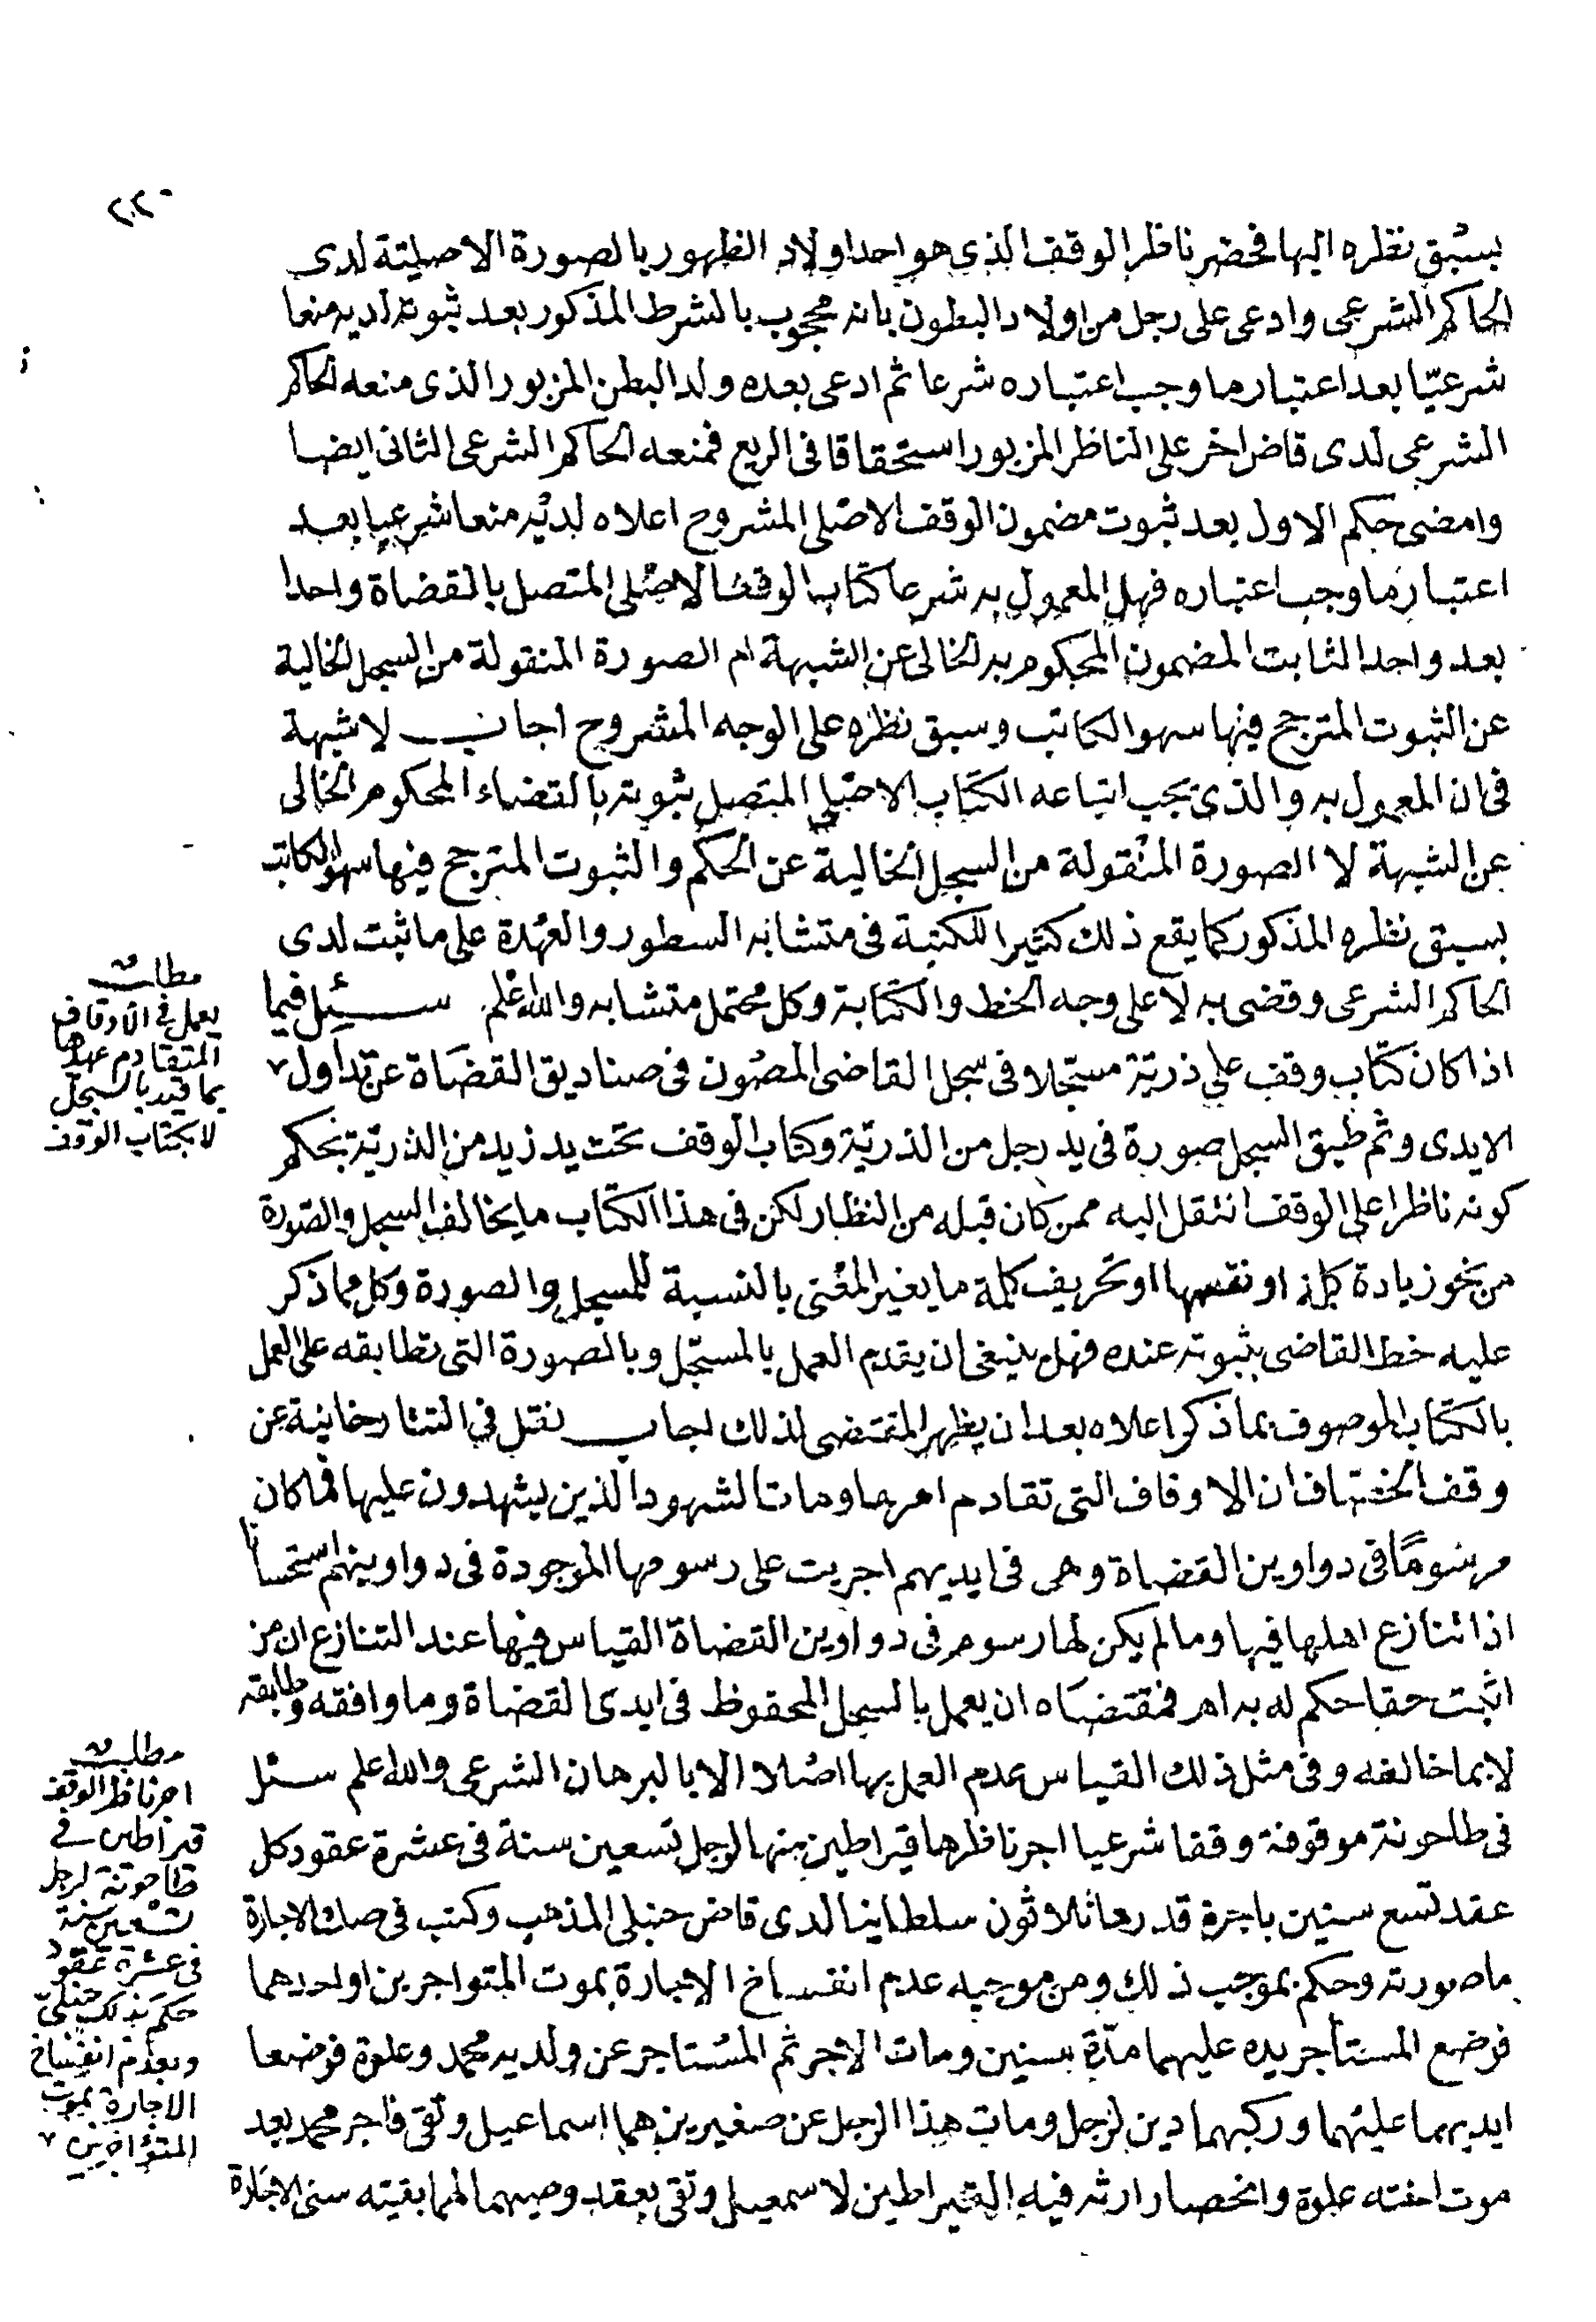 ٢٠٢
بسبق نظره اليها فحضر ناظر الوقف الذى هو احد اولاد الظهور بالصورة الاصلية لدى
الحاكم الشرعى وادعى على رجل من اولاد البطون بانه محجوب بالشرط المذكور بعد ثبوته لديه منعا
شرعيا بعد اعتبار ما وجب اعتباره شرعا ثم ادعى بعده ولد البطن المزبور الذى منعه الحاكم
الشرعى لدى قاض اخر على الناظر المزبور استحقاقا فى الريع فمنعه الحاكم الشرعى الثانى ايضا
وامضى حكم الاول بعد ثبوت مضمون الوقف الاصلى المشروح اعلاه لديه منعا شرعيا بعد
اعتبار ما وجب اعتباره فهل المعمول به شرعا كتاب الوقف الاصلى المتصل بالقضاة واحدا
بعد واحد الثابت المضمون المحكوم به الخالى عن الشبهة ام الصورة المنقولة من السجل الخالية
عن الثبوت المترجح فيها سهو الكاتب وسبق نظره على الوجه المشروح اجاب لا شبهة
فى ان المعمول به والذى يجب اتباعه الكتاب الاصلى المتصل ثبوته بالقضاء المحكوم الخالى
عن الشبهة لا الصورة المنقولة من السجل الخالية عن الحكم والثبوت المترجح فيها سهو الكاتب
بسبق نظره المذكور كما يقع ذلك كثيرا للكتبة فى متشابه السطور والعهدة على ما ثبت لدى
الحاكم الشرعى وقضى به لا على وجه الخط والكتابة وكل محتمل متشابه والله اعلم سئل فيما
اذا كان كتاب وقف على ذرية مسجلا فى سجل القاضى المصون فى صناديق القضاة عن تداول
الايدى وثم طبق السجل صورة فى يد رجل من الذرية وكتاب الوقف تحت يد زيد من الذرية بحكم
كونه ناظرا على الوقف انتقل اليه ممن كان قبله من النظار لكن فى هذا الكتاب ما يخالف السجل والصورة
من نحو زيادة كلمة او نقصها او تحريف كلمة ما يغير المعنى بالنسبة للسجل والصورة وكل مما ذكر
عليه خط القاضى بثبوته عنده فهل ينبغى ان يقدم العمل بالمسجل وبالصورة التى تطابقه على العمل
بالكتاب الموصوف بما ذكر اعلاه بعد ان يظهر المقتضى لذلك اجاب نقل فى التتارخانية عن
وقف الخصاف ان الاوقاف التى تقادم امرها ومات الشهود الذين يشهدون عليها فما كان
مرسوما فى دواوين القضاة وهى فى ايديهم اجريت على رسومها الموجودة فى دواوينهم استحسانا
اذا تنازع اهلها فيها وما لم يكن لها رسوم فى دواوين القضاة القياس فيها عند التنازع ان من
اثبت حقا حكم له به اهـ فمقتضاه ان يعمل بالسجل المحفوظ فى ايدى القضاة وما وافقه وطابقه
لا بما خالفه وفى مثل ذلك القياس عدم العمل بها اصلا الا بالبرهان الشرعى والله اعلم سئل
فى طاحونة موقوفة وقفا شرعيا اجر ناظرها قيراطين منها لرجل تسعين سنة فى عشرة عقود كل
عقد تسع سنين باجرة قدرها ثلاثون سلطانيا لدى قاض حنبلى المذهب وكتب فى صك الاجارة
ما صورته وحكم بموجب ذلك ومن موجبه عدم انفساخ الاجارة بموت المتواجرين او احدهما
فوضع المستأجر يده عليهما مدة سنين ومات الاجر ثم المستاجر عن ولديه محمد وعلوة فوضعا
ايديهما عليهما وركبهما دين لرجل ومات هذا الرجل عن صغيرين هما اسماعيل وتقى فاجر محمد بعد
موت اخته علوة وانحصار ارثه فيه القيراطين لاسمعيل وتقى بعقد وصيهما لهما بقيته سنى الاجارة
مطلب
يعمل فى الاوقاف
المتقادم عهدها
بما قيد بالسجل
لا بكتاب الوقف
مطلب
اجر ناظر الوقف
قيراطين فى
طاحونة لرجل
تسعين سنة
فى عشرة عقود
حكم بذلك حنبلى
وبعدم انفساخ
الاجارة بموت
المتؤاجرين